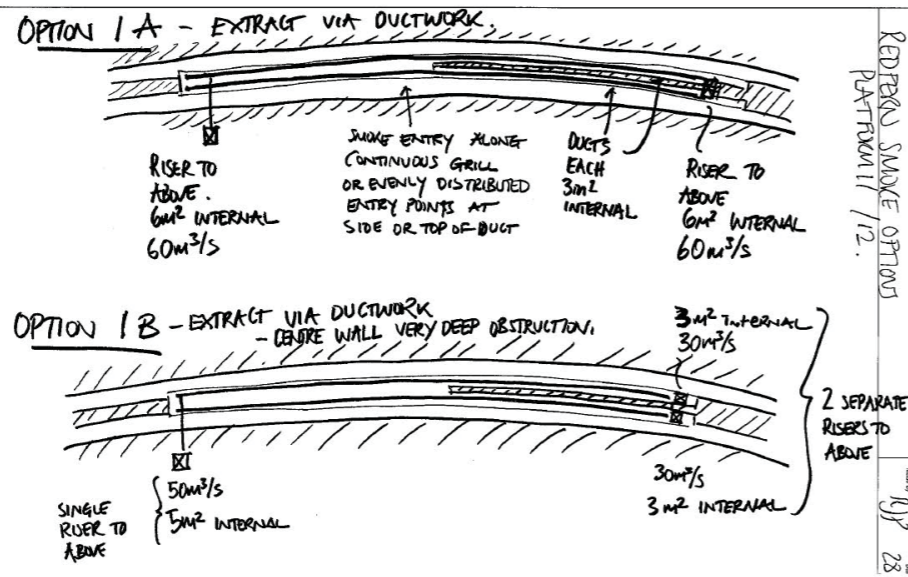 OPTION 1A - EXTRACT VIA DUCTWORK.
RISER TO
ABOVE.
6m² INTERNAL
60m³/s
SMOKE ENTRY ALONG
CONTINUOUS GRILL
OR EVENLY DISTRIBUTED
ENTRY POINTS AT
SIDE OR TOP OF DUCT
DUCTS
EACH
3m²
INTERNAL
RISER TO
ABOVE
6m² INTERNAL
60m³/s
OPTION 1B - EXTRACT VIA DUCTWORK
- CENTRE WALL VERY DEEP OBSTRUCTION.
3m² INTERNAL
30m³/s
2 SEPARATE
RISERS TO
ABOVE
30m³/s
3m² INTERNAL
SINGLE
RISER TO
ABOVE
50m³/s
5m² INTERNAL
REDFERN SMOKE OPTIONS
PLATFORM 11/12.
28